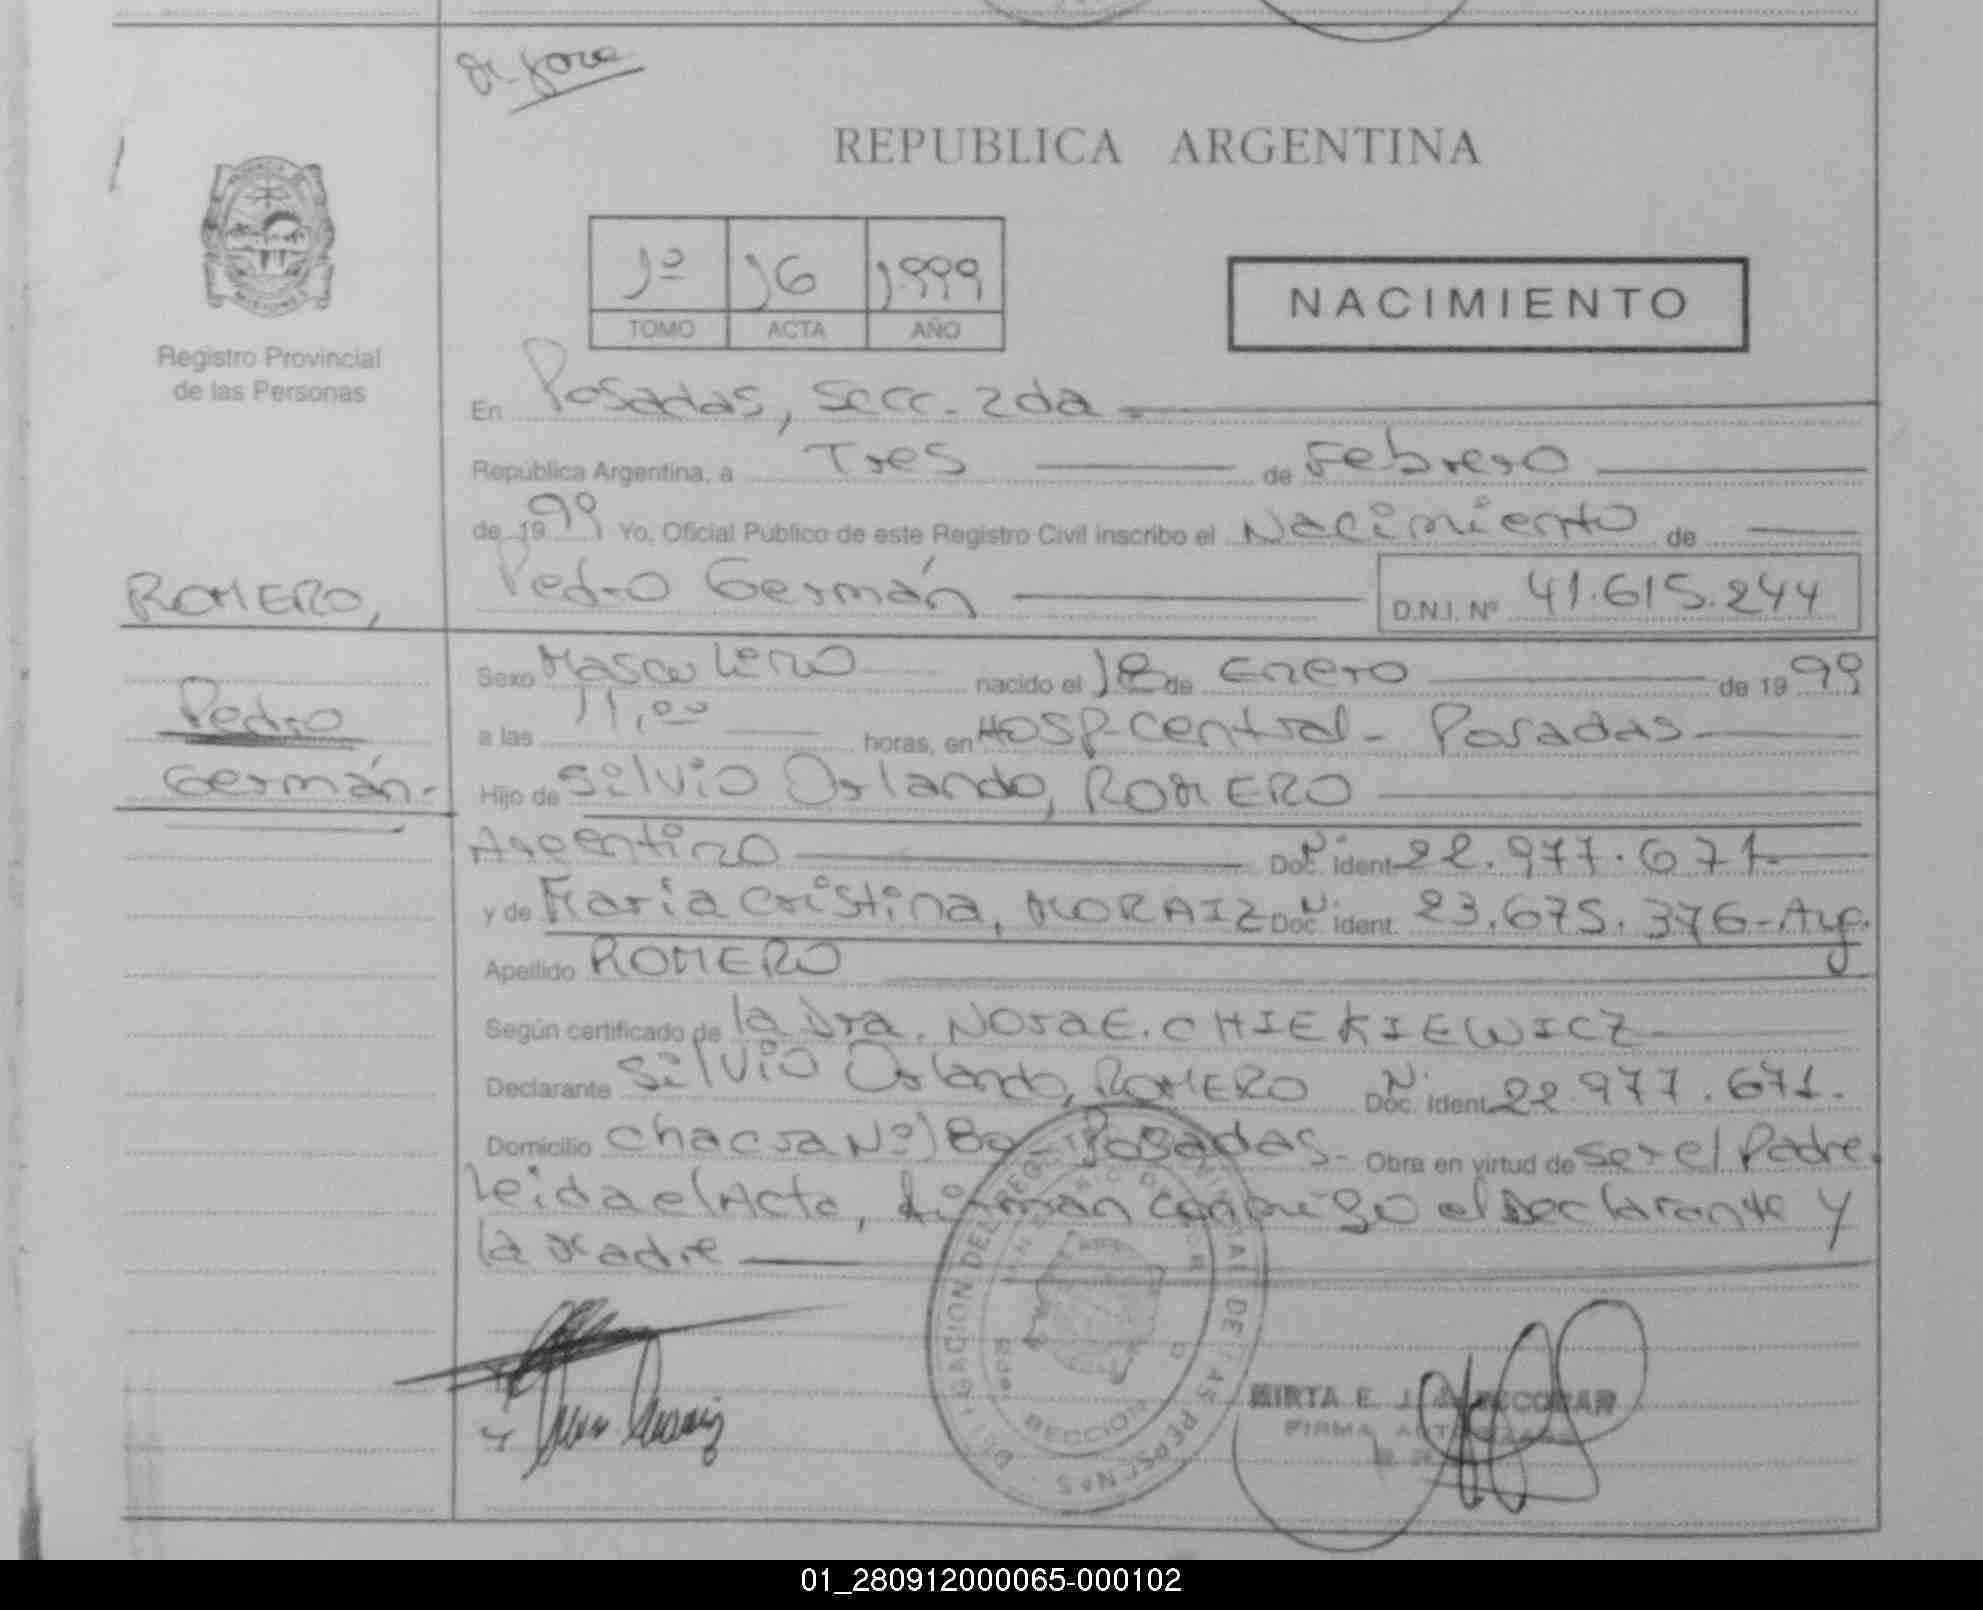 REPUBLICA ARGENTINA
1º 16 1999
TOMO ACTA AÑO
NACIMIENTO
Registro Provincial
de las Personas
En Posadas, Secc. 2da
República Argentina, a Tres de Febrero
de 1999 Yo, Oficial Público de este Registro Civil inscribo el Nacimiento de
Pedro Germán D.N.I. Nº 41.615.244
ROMERO,
Pedro
Germán.
Sexo Masculino nacido el 18 de Enero de 1999
a las 11,00 horas, en Hosp. Central - Posadas
Hijo de Silvio Orlando, ROMERO
Argentino Doc. Ident. 22.977.671
y de Maria Cristina, MORAIZ Doc. Ident. 23.675.376 - Arg.
Apellido ROMERO
Según certificado de la Dra. Nora E. CHIEKIEWICZ
Declarante Silvio Orlando, ROMERO Doc. Ident. 22.977.671.
Domicilio Chacra Nº 180 - Posadas. Obra en virtud de ser el Padre.
Leida el Acta, firman conmigo el Declarante y
la Madre
DELEGACION DEL REGISTRO PROVINCIAL DE LAS PERSONAS
SECCION
MIRTA E. J. ESCOBAR
FIRMA
01_280912000065-000102